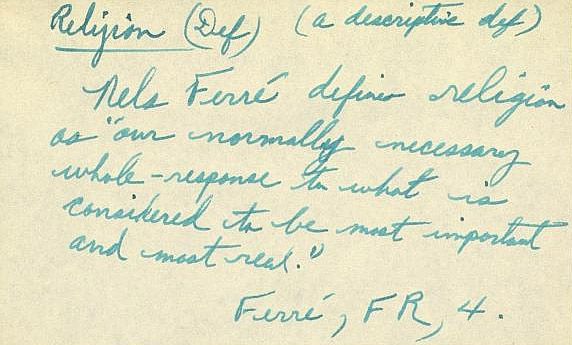 Religion (Def) (a descriptive def)
Nels Ferré defines religion
as "our normally necessary
whole-response to what is
considered to be most important
and most real."
Ferré, FR, 4.